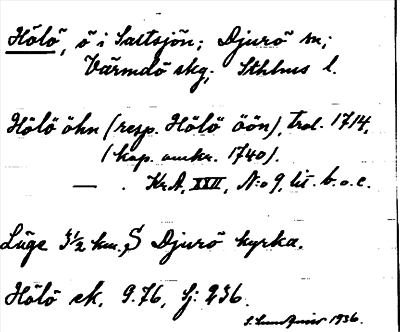 Hölö, ö i Saltsjön; Djurö sn;
Värmdö skg; Sthlms l.
Hölö öhn (resp. Hölö öön), trol. 1714,
(kap. omkr. 1740).
— . Kr.A, XXII, N:o 9, lit. b.o.c.
Läge 3½ km. S Djurö kyrka.
Hölö ek. 9.76, Gj: 236.
1936.